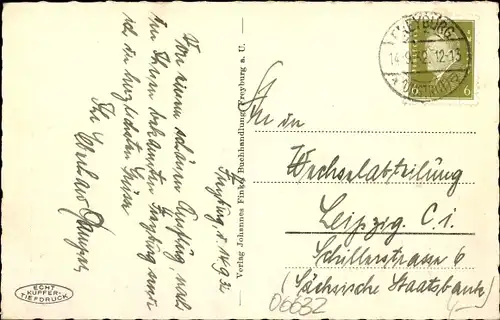 Freyburg, d. 14.9.32
Von einem schönen Ausflug nach
dem Ihnen bekannten Freyburg sende
ich die herzlichsten Grüsse
Ihr
Verlag Johannes Finke Buchhandlung Freyburg a. U.
FREYBURG
14.9.32.12-13
* (UNSTRUT) *
6 6
An die
Wechselabteilung
Leipzig. C. 1.
Schillerstrasse 6
(Sächsische Staatsbank)
06632
ECHT
KUPFER-
TIEFDRUCK